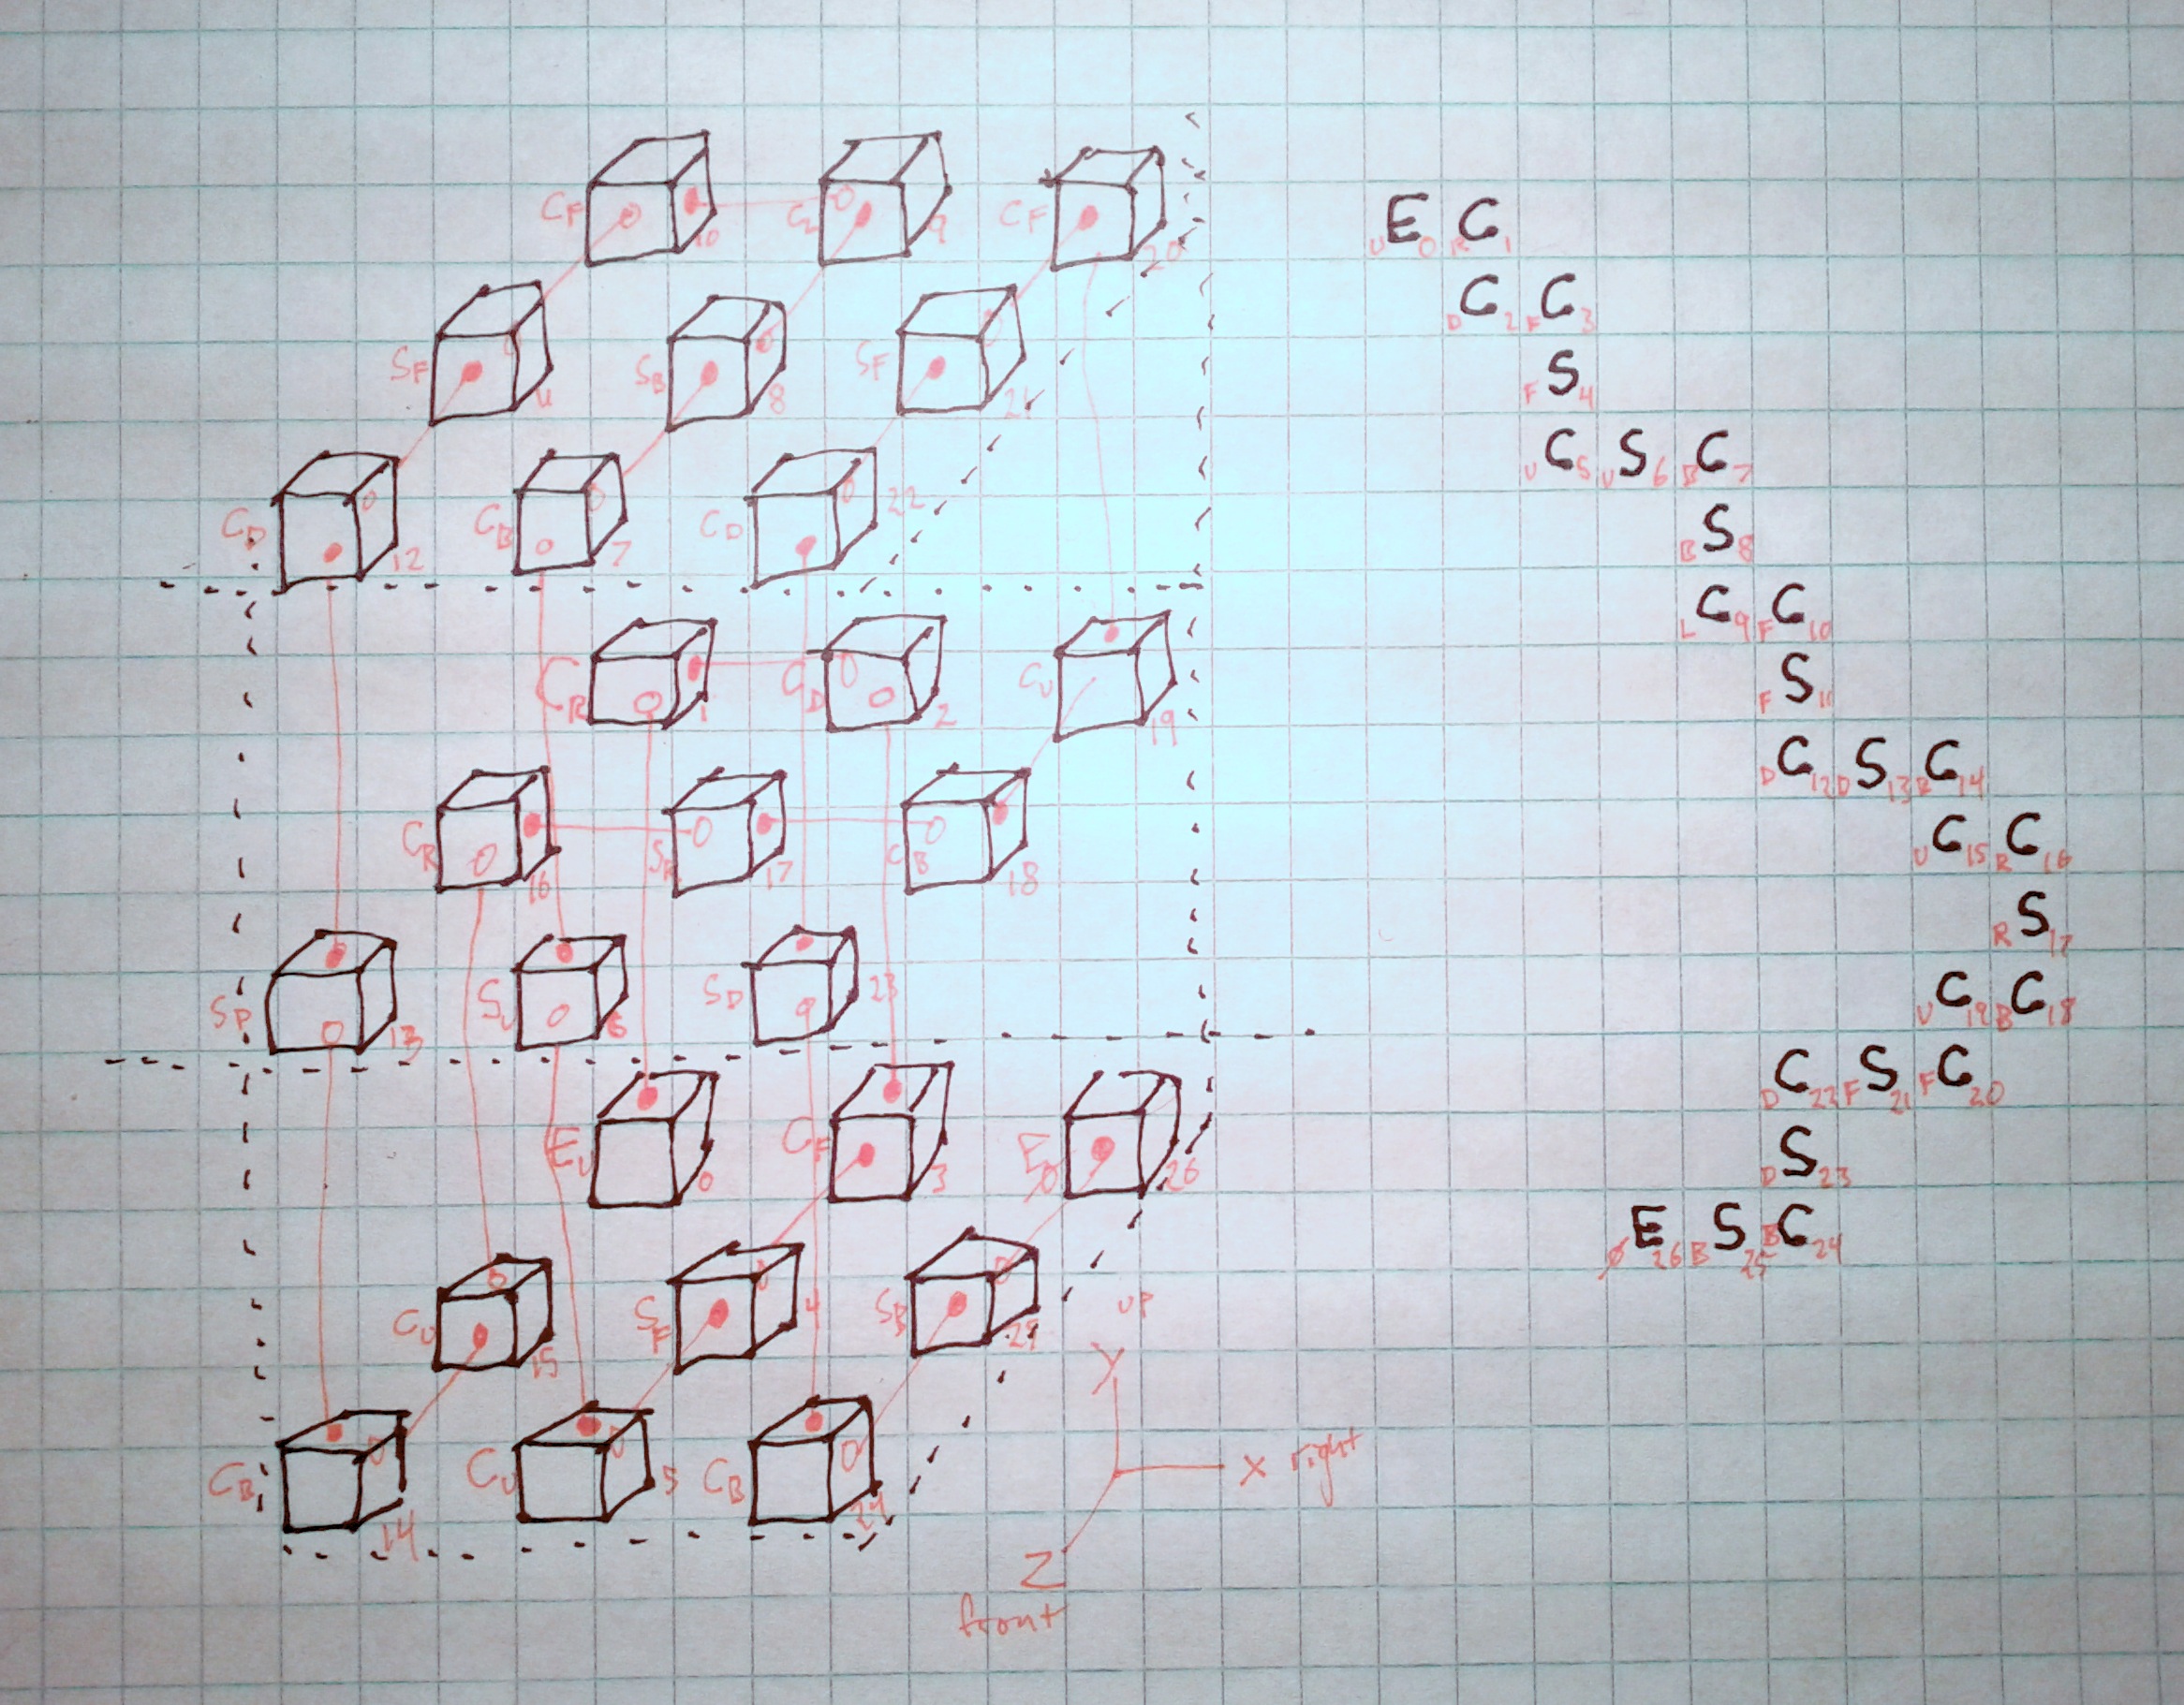 C F 10 C L 9 C F 20
S F 4 S B 8 S F 21
C D 12 C B 7 C D 22
C R 1 C D 2 C U 19
C R 16 S R 17 C B 18
S D 13 S U 6 S D 23
E U 0 C F 3 E Ø 26
C U 15 S F 4 S B 25
C B 14 C U 5 C B 24
UP
Y
X right
Z
front
U E 0 R C 1
D C 2 F C 3
F S 4
U C 5 U S 6 B C 7
B S 8
L C 9 F C 10
F S 11
D C 12 D S 13 B C 14
U C 15 R C 16
R S 17
U C 19 B C 18
D C 22 F S 21 F C 20
D S 23
Ø E 26 B S 25 B C 24